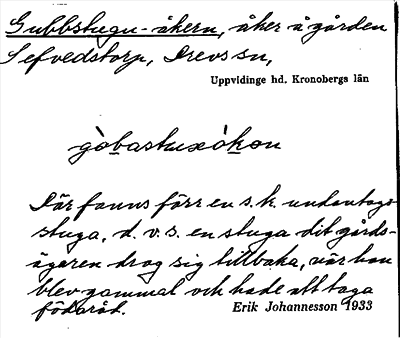 Gubbstugu-åkern, åker å gården
Sefvedstorp, Drevs sn,
Uppvidinge hd. Kronobergs län
gòbastuxòkon
Där fanns förr en s.k. undantags-
stuga, d.v.s. en stuga dit gårds-
ägaren drog sig tillbaka, när han
blev gammal och hade att taga
födoråd.
Erik Johannesson 1933